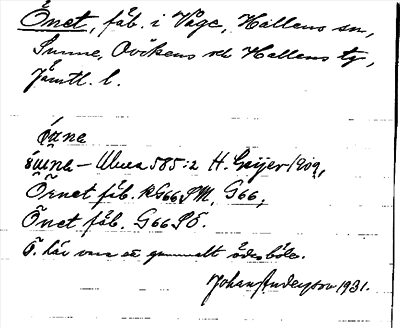 Önet, fäb. i Vage, Hallens sn,
Sunne, Ovikens o Hallens tg,
Jämtl. l.
öᶏna
öuna – Ulma 585:2 H. Geijer 1909,
Örnet fäb. RG66 SM, G66,
Önet fäb. G66 SÖ.
Ö. här vara ett gammalt ödesböle.
Johan Anderson 1931.